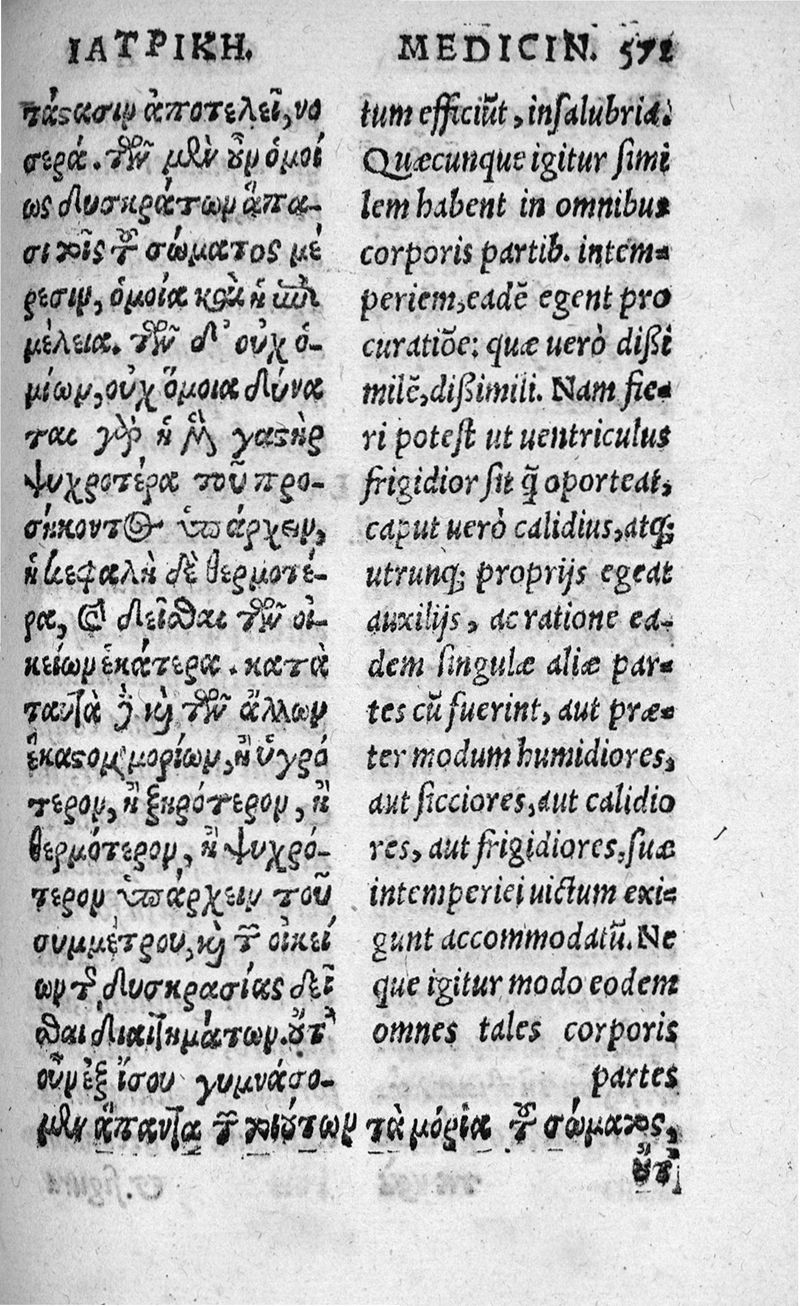 ΙΑΤΡΙΚΗ.
MEDICIN. 571
τάςασιν ἀποτελεῖ, νο
σερά. τῶν μὲν οὖν ὁμοί
ως δυσκράτων ἅπα-
σι τοῖς τοῦ σώματος μέ
ρεσιν, ὁμοία καὶ ἡ ἐπι
μέλεια. τῶν δ' οὐχ ὁ-
μοίων, οὐχ ὅμοια δύνα
ται γὰρ ἡ μὲν γαςὴρ
ψυχροτέρα τοῦ προ-
σήκοντος ὑπάρχειν,
ἡ κεφαλὴ δὲ θερμοτέ-
ρα, καὶ δεῖσθαι τῶν οἰ-
κείων ἑκάτερα. κατὰ
ταυτὰ δὲ καὶ τῶν ἄλλων
ἕκαςον μορίων, ἢ ὑγρό
τερον, ἢ ξηρότερον, ἢ
θερμότερον, ἢ ψυχρό-
τερον ὑπάρχειν τοῦ
συμμέτρου, καὶ τῶν οἰκεί
ων τῆς δυσκρασίας δεῖ
σθαι διαιτημάτων. οὔτ'
οὖν ἐξ ἴσου γυμνάσο-
μεν ἅπαντα τῶν τοιούτων τὰ μόρια τοῦ σώματος,
οὔτε
tum efficiũt, insalubria.
Quæcunque igitur simi
lem habent in omnibus
corporis partib. intem-
periem, eadẽ egent pro
curatiõe: quæ uerò dißi
milẽ, dißimili. Nam fie-
ri potest ut uentriculus
frigidior sit q̃ oporteat,
caput uerò calidius, atq;
utrunq; proprijs egeat
auxilijs, ac ratione ea-
dem singulæ aliæ par-
tes cũ fuerint, aut præ-
ter modum humidiores,
aut sicciores, aut calidio
res, aut frigidiores, suæ
intemperiei uictum exi-
gunt accommodatũ. Ne
que igitur modo eodem
omnes tales corporis
partes